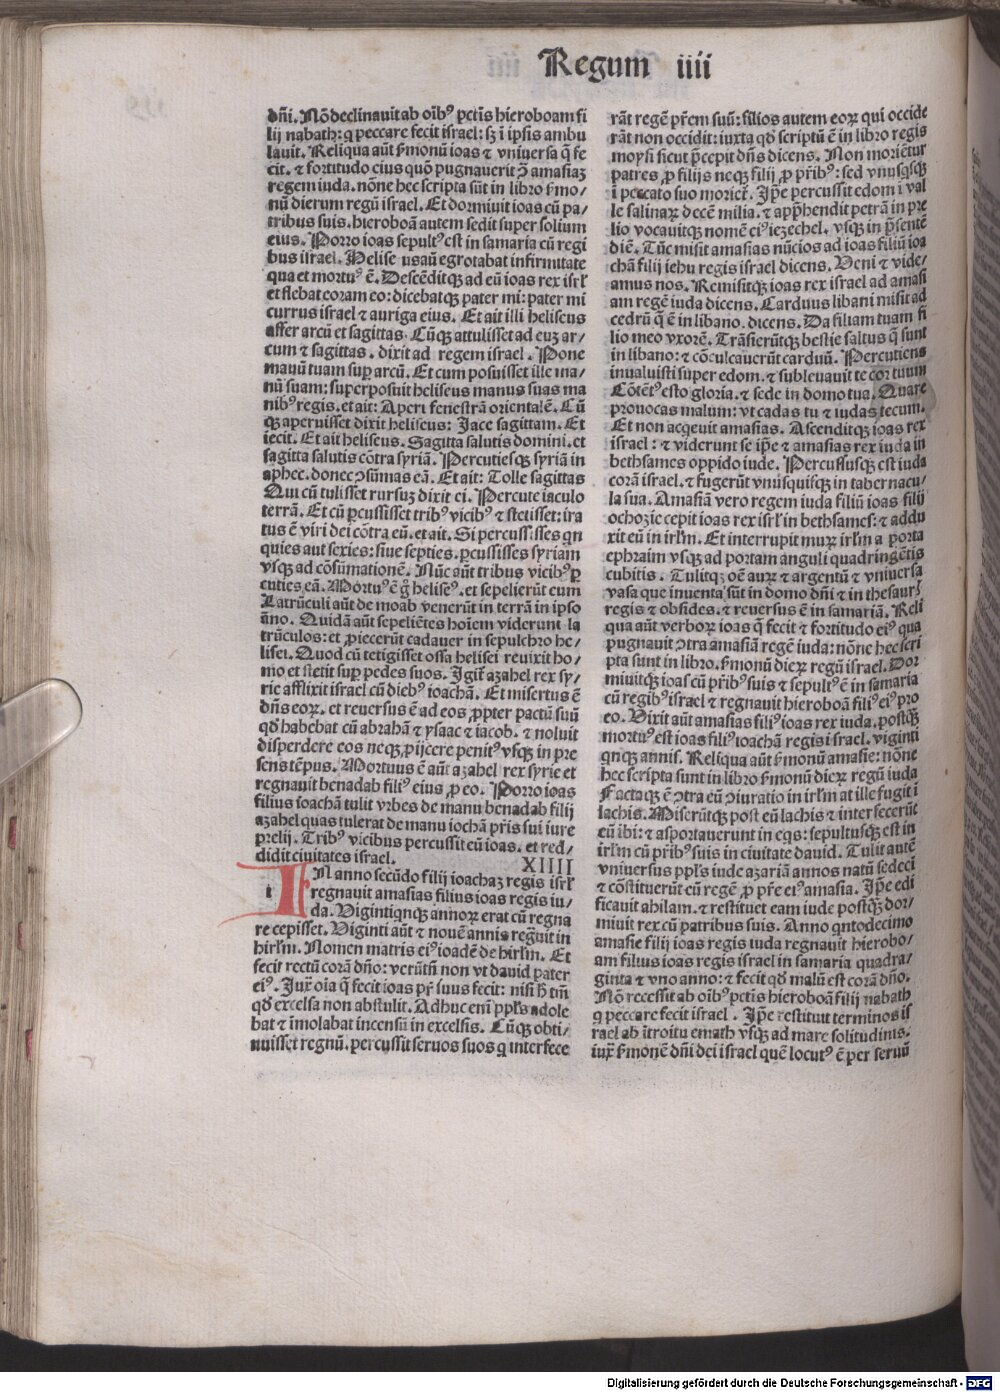 Regum iiii
dñi. Nõ declinauit ab oĩbꝰ pctĩs hieroboam fi
lij nabath: q̇ peccare fecit israel: sȝ ĩ ipsis ambu
lauit. Reliqua aũt ẜmonũ ioas ⁊ vniuersa q̃ fe
cit. ⁊ fortitudo eius quõ pugnauerit ↄ̃ amasiaȝ
regem iuda. nõne hec scripta sũt in libro ẜmo/
nũ dierum regũ israel. Et dormiuit ioas cũ pa/
tribus suis. hieroboã autem sedit super solium
eius. Porro ioas sepultꝰ est in samaria cũ regi
bus israel. Helise usaũ egrotabat infirmitate
qua et mortuꝰ ẽ. Descẽditqȝ ad eũ ioas rex isrł
et flebat coram eo: dicebatqȝ pater mi: pater mi
currus israel ⁊ auriga eius. Et ait illi heliseus
affer arcũ et sagittas. Cũqȝ attulisset ad euȝ ar/
cum ⁊ sagittas. dixit ad regem israel. Pone
manũ tuam suꝑ arcũ. Et cum posuisset ille ma/
nũ suam: superposuit heliseus manus suas ma
nibꝰ regis. et ait: Aperi fenestrã orientalẽ. Cũ
qȝ aperuisset dixit heliseus: Jace sagittam. Et
iecit. Et ait heliseus. Sagitta salutis domini. et
sagitta salutis cõtra syriã. Percutiesqȝ syriã in
aphec. donec ↄ̃sũmas eã. Et ait: Tolle sagittas
Qui cũ tulisset rursuȝ dixit ei. Percute iaculo
terrã. Et cũ ꝑcussisset tribꝰ vicibꝰ ⁊ stetisset: ira
tus ẽ viri dei cõtra eũ. et ait. Si percussisses qn
quies aut sexies: siue septies. ꝑcussisses syriam
vsqȝ ad cõsũmationẽ. Nũc aũt tribus vicibꝰ ꝑ
cuties eã. Mortuꝰ ẽ g̊ heliseꝰ. et sepelierũt eum
Latrũculi aũt de moab venerũt in terrã in ipso
ãno. Quidã aũt sepeliẽtes hoĩem viderunt la
trũculos: et ꝓiecerũt cadauer in sepulchro he/
lisei. Quod cũ tetigisset ossa helisei reuixit ho/
mo et stetit suꝑ pedes suos. Jgit̃ azahel rex sy/
rie afflixit israel cũ̃ diebꝰ ioachã. Et misertus ẽ
dñs eoꝝ. et reuersus ẽ ad eos ꝓpter pactũ suũ
qď habebat cũ abrahã ⁊ ysaac ⁊ iacob. ⁊ noluit
disperdere eos neqȝ ꝓijcere penitꝰ vsqȝ in pre
sens tẽpus. Mortuus ẽ aũt azahel rex syrie et
regnauit benadab filiꝰ eius ꝓ eo. Porro ioas
filius ioachã tulit vrbes de manu benadab filij
azahel quas tulerat de manu iochã pr̃is sui iure
prelij. Tribꝰ vicibus percussit eũ ioas. et red/
didit ciuitates israel. XIIII
i IN anno secũdo filij ioachaȝ regis isrł
regnauit amasias filius ioas regis iu/
da. Vigintiqnqȝ annoꝝ erat cũ regna
re cepisset. Viginti aũt ⁊ nouẽ annis reg̃uit in
hirłm. Nomen matris eiꝰ ioadẽ de hirłm. Et
fecit rectũ corã dño: verũtñ non vt dauid pater
eiꝰ. Jux̃ oĩa q̃ fecit ioas pr̃ suus fecit: nisi h̃ tm̃
qď excelsa non abstulit. Adhuc enĩ ppłs adole
bat ⁊ imolabat incensũ in excelsis. Cũqȝ obti/
nuisset regnũ. percussit seruos suos q̇ interfece
rãt regẽ pr̃em suũ: filios autem eoꝝ qui occide
rãt non occidit: iuxta qď scriptũ ẽ in libro regis
moysi sicut p̃cepit dñs dicens. Non moriẽtur
patres ꝓ filijs neqȝ filij ꝓ pr̃ibꝰ: sed vnusqsqȝ
ĩ peccato suo moriet̃. Jpẽ percussit edom ĩ val
le salinaꝝ decẽ milia. ⁊ app̃hendit petrã in pre
lio vocauitqȝ nomẽ eiꝰ iezechel. vsqȝ in p̃sentẽ
diẽ. Tũc misit amasias nũcios ad ioas filiũ ioa
chã filij iehu regis israel dicens. Veni ⁊ vide/
amus nos. Remisitqȝ ioas rex israel ad amasi
am regẽ iuda dicens. Carduus libani misit ad
cedrũ q̃ ẽ in libano. dicens. Da filiam tuam fi
lio meo vxorẽ. Trãsierũtqȝ bestie saltus q̃ sunt
in libano: ⁊ cõculcauerũt carduũ. Percutiens
inualuisti super edom. ⁊ subleuauit te cor tuum
Cõtẽtꝰ esto gloria. ⁊ sede in domo tua. Quare
prouocas malum: vt cadas tu ⁊ iudas tecum.
Et non acqeuit amasias. Ascenditqȝ ioas rex
israel: ⁊ viderunt se ipẽ ⁊ amasias rex iuda in
bethsames oppido iude. Percussusqȝ est iuda
corã israel. ⁊ fugerũt vnusquisqȝ in tabernacu/
la sua. Amasiã vero regem iuda filiũ ioas filij
ochozie cepit ioas rex isrł in bethsames: ⁊ addu
xit eũ in irłm. Et interrupit muꝝ irłm a porta
ephraim vsqȝ ad portam anguli quadringẽtis
cubitis. Tulitqȝ oẽ auꝝ ⁊ argentũ ⁊ vniuersa
vasa que inuenta sũt in domo dñi ⁊ in thesaur̃
regis ⁊ obsides. ⁊ reuersus ẽ in samariã. Reli
qua aũt verboꝝ ioas q̃ fecit ⁊ fortitudo eiꝰ qua
pugnauit ↄ̃tra amasiã regẽ iuda: nõne hec scri
pta sunt in libro. ẜmonũ dieꝝ regũ israel. Dor
miuitqȝ ioas cũ pr̃ibꝰ suis ⁊ sepultꝰ ẽ in samaria
cũ regibꝰ israel ⁊ regnauit hieroboã filiꝰ eiꝰ pro
eo. Vixit aũt amasias filiꝰ ioas rex iuda. postqȝ
mortuꝰ est ioas filiꝰ ioachã regis israel. viginti
qnqȝ annis. Reliqua aũt ẜmonũ amasie: nõne
hec scripta sunt in libro ẜmonũ dieꝝ regũ iuda
Factaqȝ ẽ ↄ̃tra eũ ↄ̃iuratio in irłm at ille fugit ĩ
lachis. Miserũtqȝ post eũ lachis ⁊ interfecerũt
eũ ibi: ⁊ asportauerunt in eqs: sepultusqȝ est in
irłm cũ pr̃ibꝰ suis in ciuitate dauid. Tulit autẽ
vniuersus ppłs iude azariã annos natũ sedeci
⁊ cõstituerũt cũ regẽ ꝓ pr̃e eiꝰ amasia. Jpẽ edi
ficauit ahilam. ⁊ restituet eam iude postqȝ dor/
miuit rex cũ patribus suis. Anno qntodecimo
amasie filij ioas regis iuda regnauit hierobo/
am filius ioas regis israel in samaria quadra/
ginta ⁊ vno anno: ⁊ fecit qď malũ est corã dño.
Nõ recessit ab oĩbꝰ pctĩs hieroboã filij nabath
q̇ peccare fecit israel. Jpẽ restituit terminos is
rael ab ĩtroitu emath vsqȝ ad mare solitudinis.
iux̃ ẜmonẽ dñi dei israel quẽ locutꝰ ẽ per seruũ
Digitalisierung gefördert durch die Deutsche Forschungsgemeinschaft - DFG